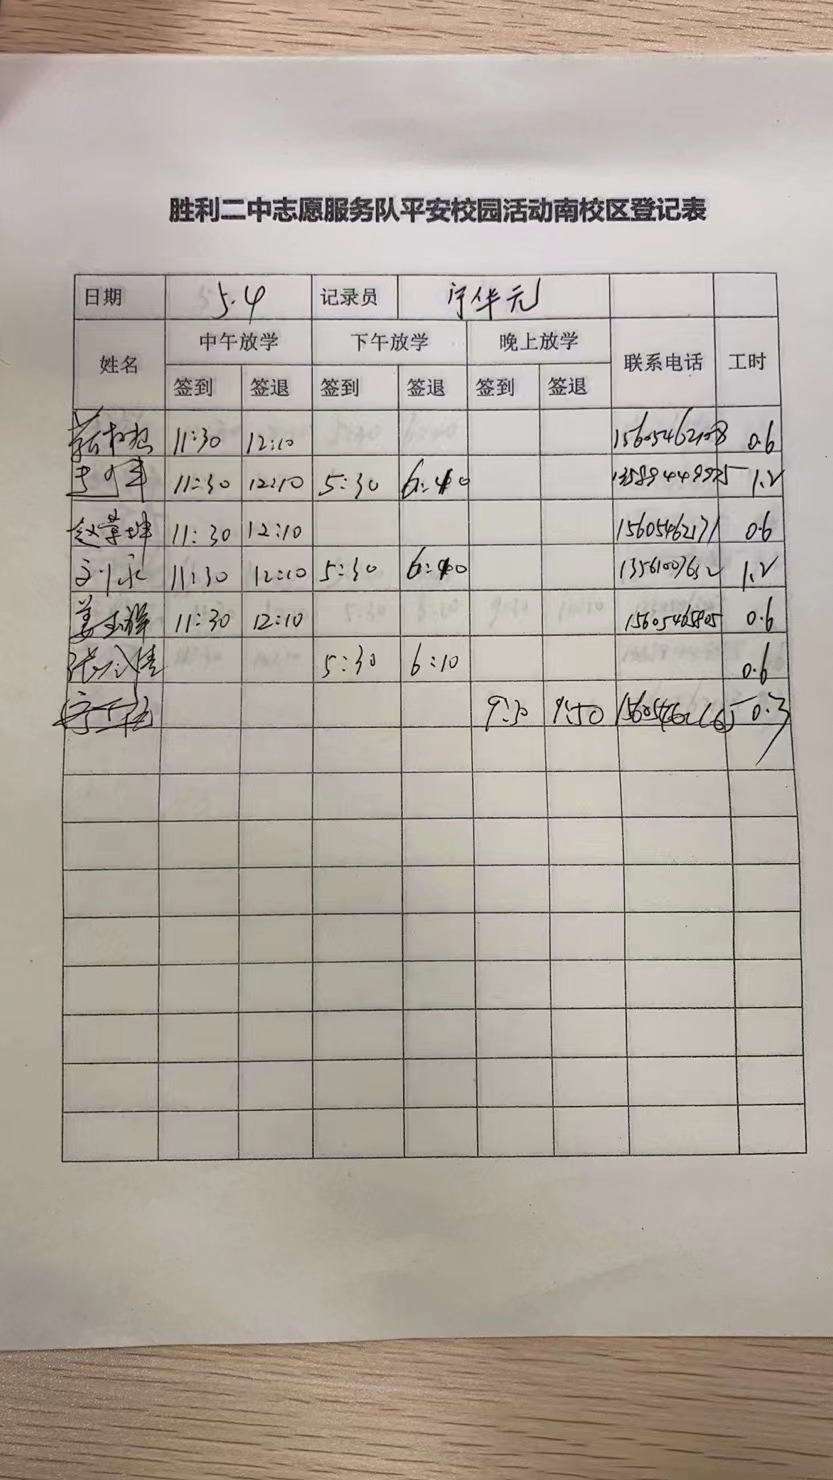 胜利二中志愿服务队平安校园活动南校区登记表
日期 5.4 记录员 宁华元
姓名 中午放学 下午放学 晚上放学 联系电话 工时
签到 签退 签到 签退 签到 签退
11:30 12:10 15605462108 0.6
11:30 12:10 5:30 6:10 1.2
赵景坤 11:30 12:10 15605462171 0.6
刘永 11:30 12:10 5:30 6:10 13561007612 1.2
姜玉祥 11:30 12:10 15605465805 0.6
5:30 6:10 0.6
9:30 9:50 0.3